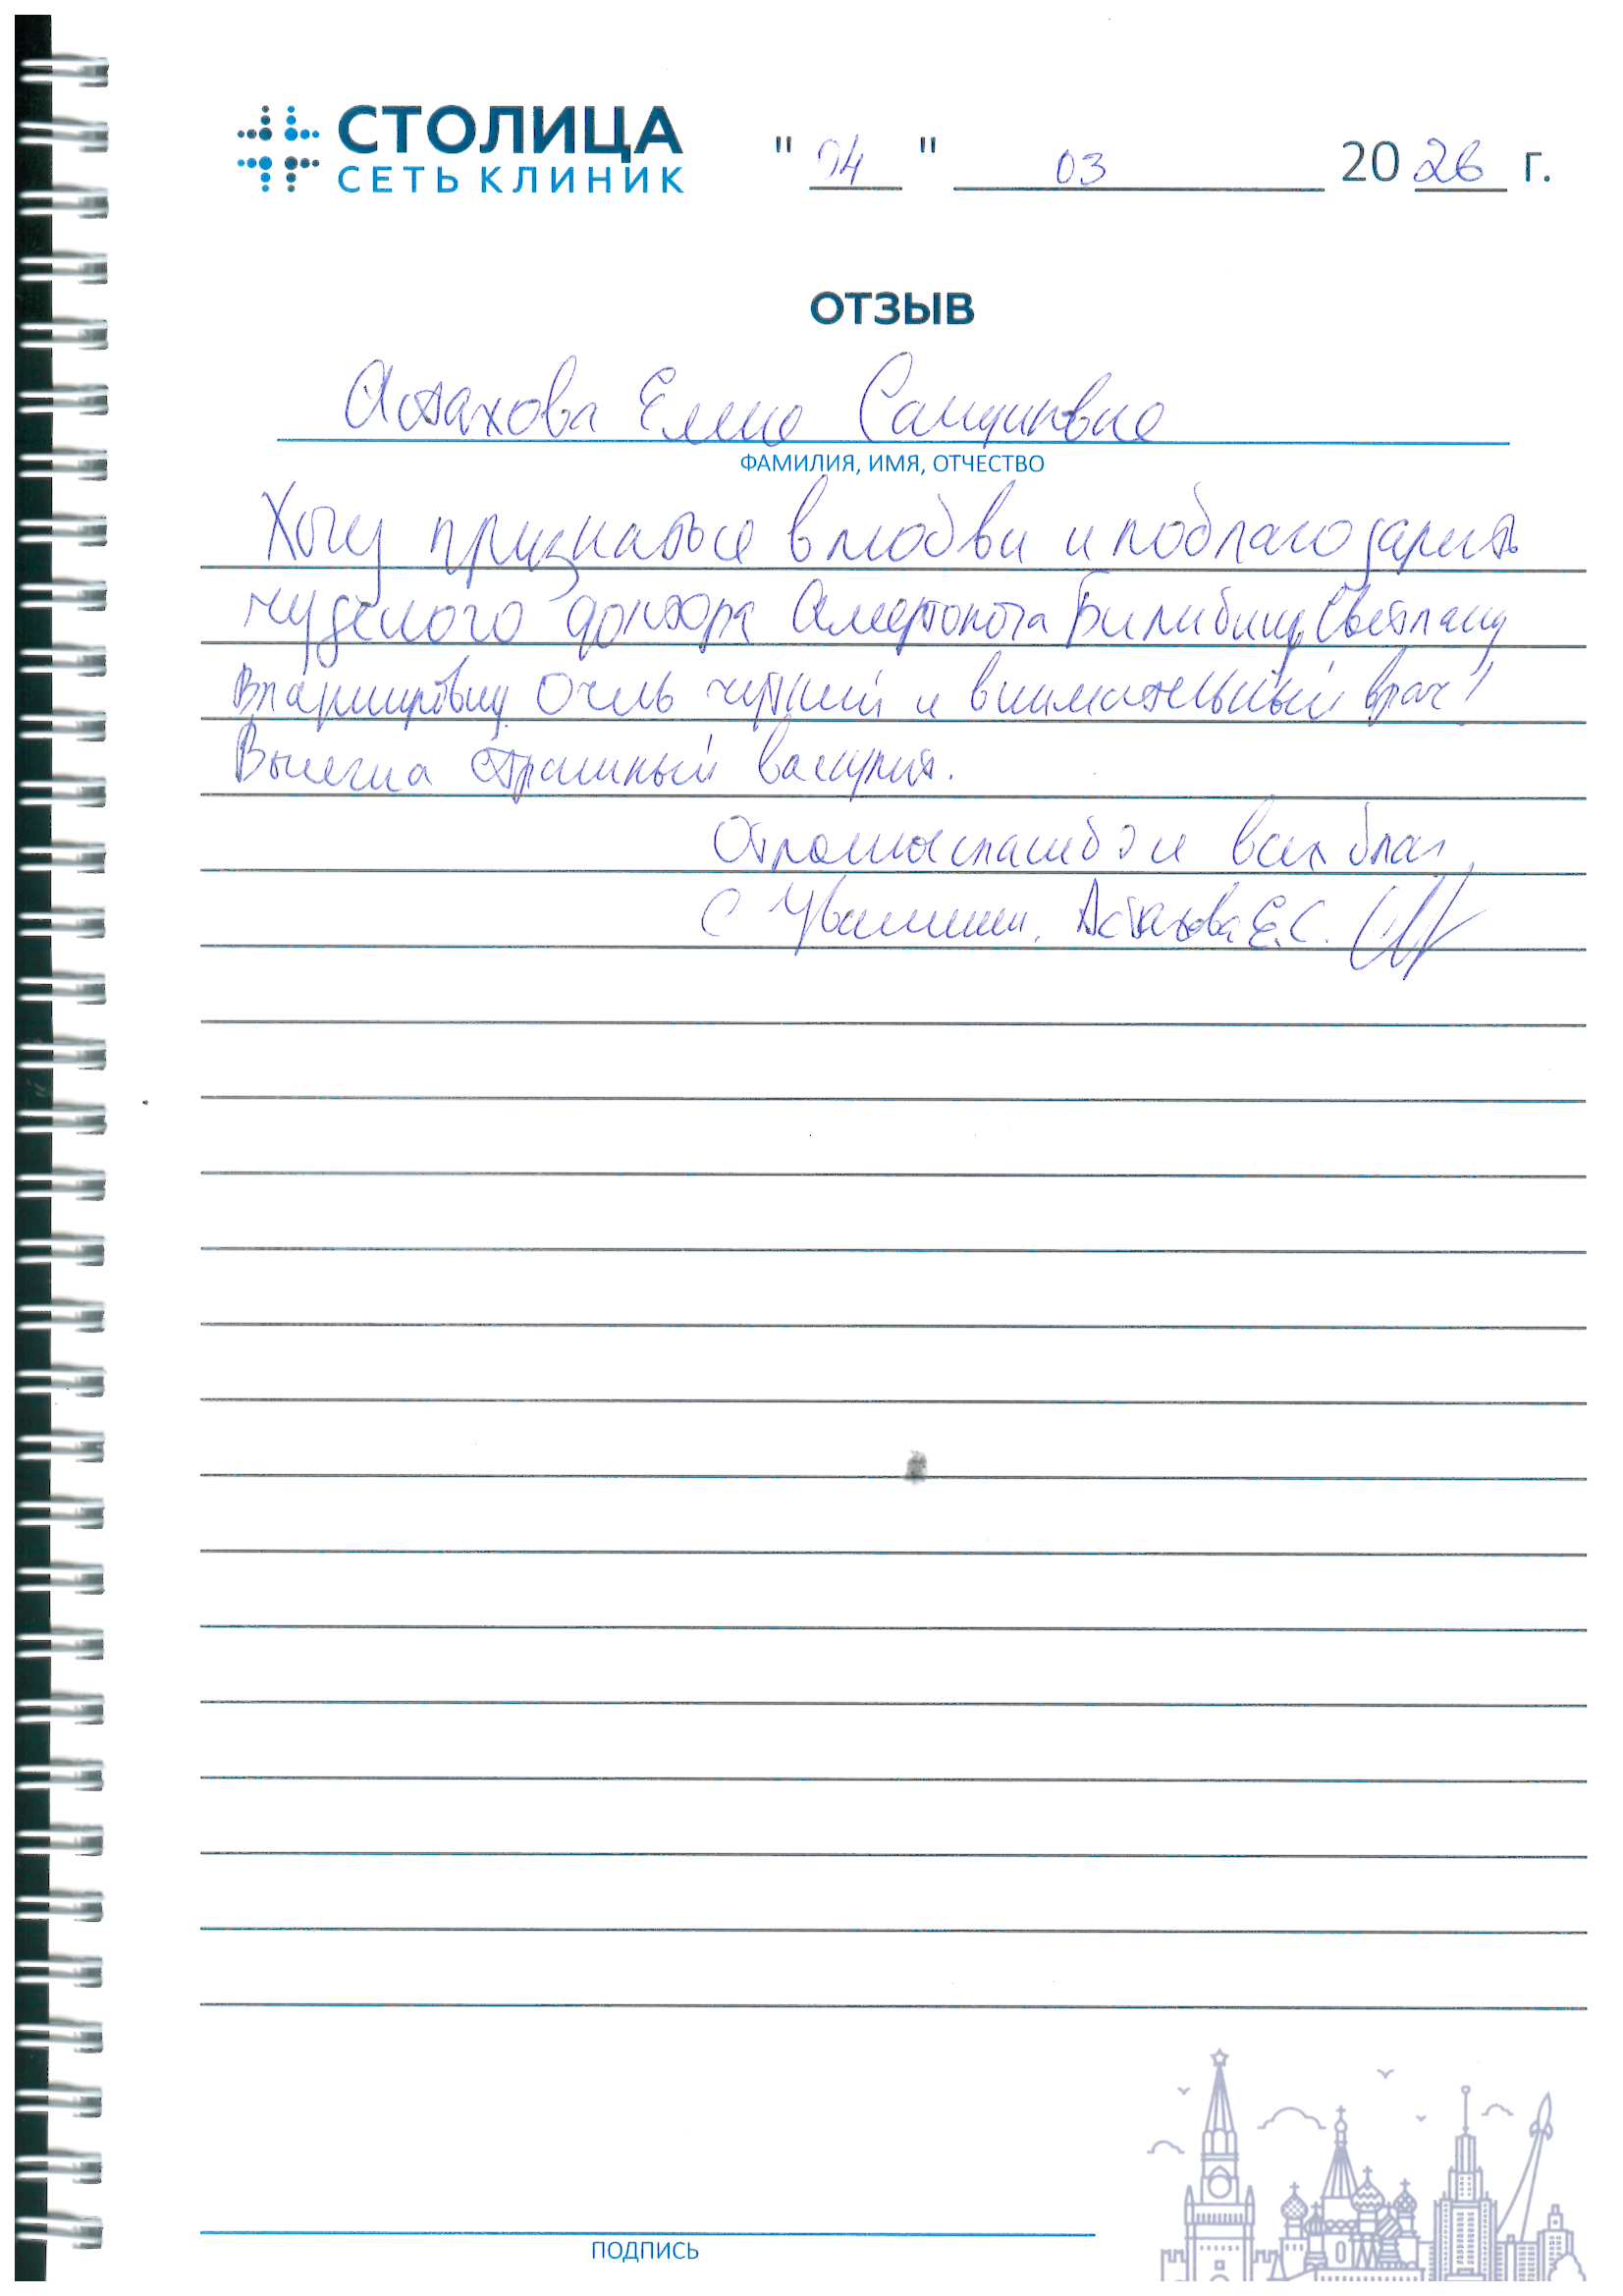 СТОЛИЦА
СЕТЬ КЛИНИК
"04" 03 2026 г.
ОТЗЫВ
Астахова Елена
ФАМИЛИЯ, ИМЯ, ОТЧЕСТВО
Хочу признаться в любви и поблагодарить
чудесного доктора Билибину Светлану
Владимировну. Очень чуткий и внимательный врач!
Вылечила страшный васкулит.
Огромное спасибо и всех благ,
С Уважением, Астахова Е.С.
ПОДПИСЬ